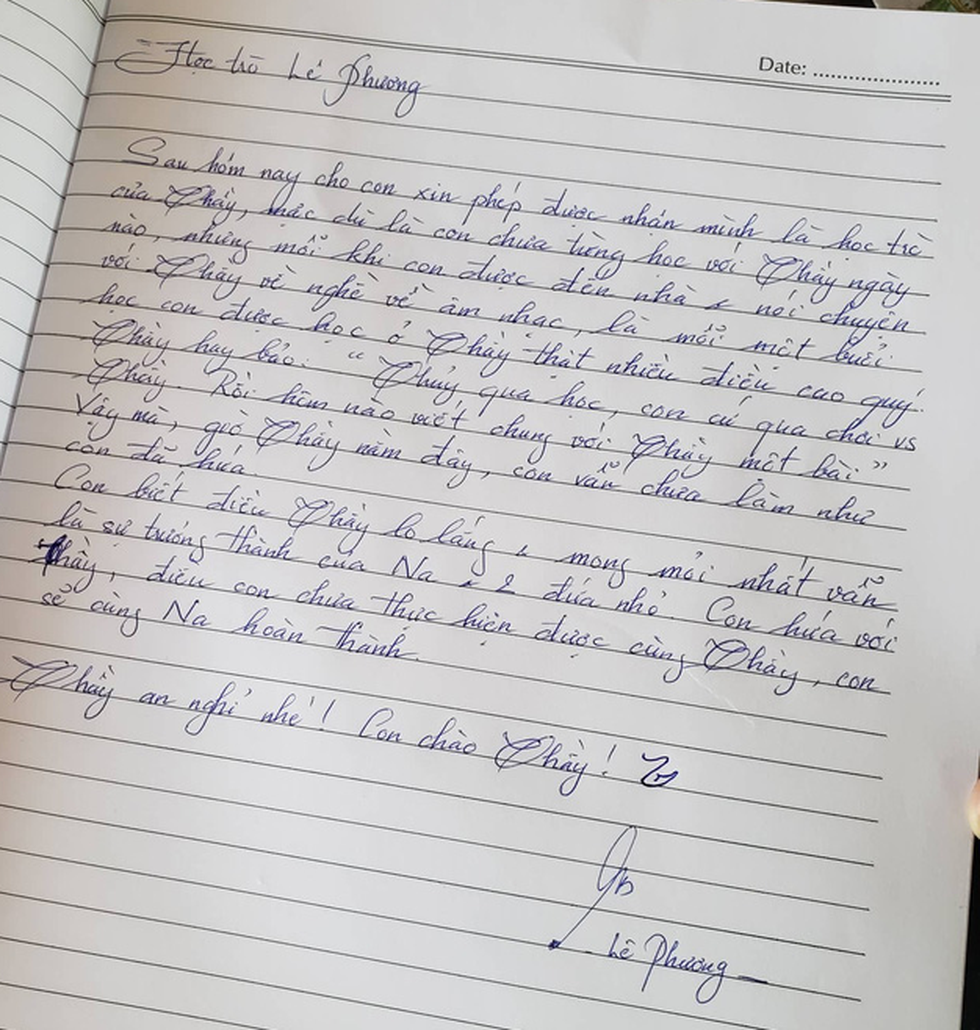 Học trò Lê Phương
Date: .....................
Sau hôm nay cho con xin phép được nhận mình là học trò
của Thầy, mặc dù là con chưa từng học với Thầy ngày
nào, nhưng mỗi khi con được đến nhà & nói chuyện
với Thầy về nghề về âm nhạc, là mỗi một buổi
học con được học ở Thầy thật nhiều điều cao quý.
Thầy hay bảo: " Thủy qua học, con cứ qua chơi vs
Thầy. Rồi hôm nào viết chung với Thầy một bài"
Vậy mà, giờ Thầy nằm đây, con vẫn chưa làm như
con đã hứa.
Con biết điều Thầy lo lắng & mong mỏi nhất vẫn
là sự trưởng thành của Na & 2 đứa nhỏ. Con hứa với
Thầy, điều con chưa thực hiện được cùng Thầy, con
sẽ cùng Na hoàn thành.
Thầy an nghỉ nhé! Con chào Thầy!
Lê Phương